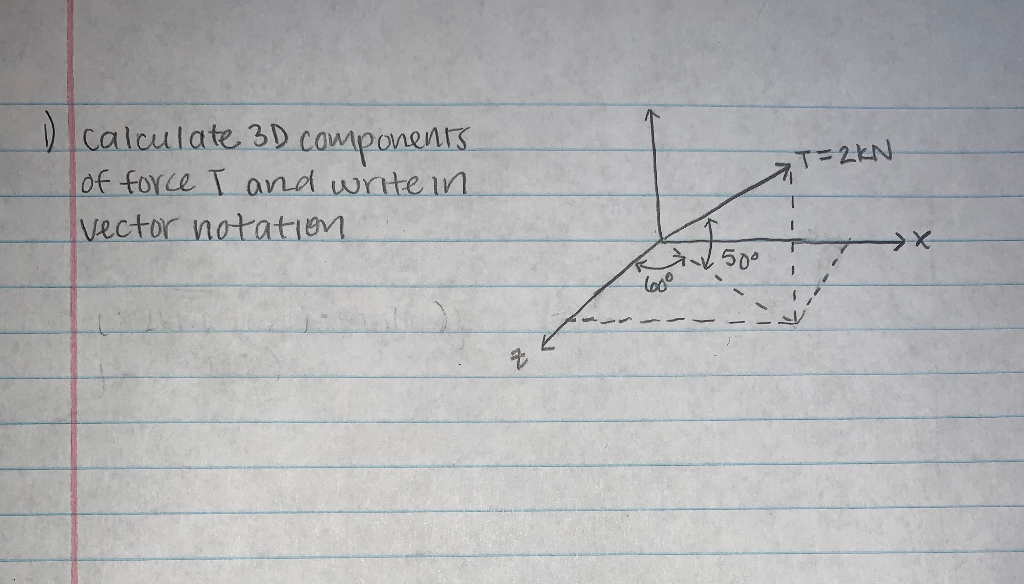 1) calculate 3D components
of force T and write in
vector notation
T=2kN
x
50°
60°
z